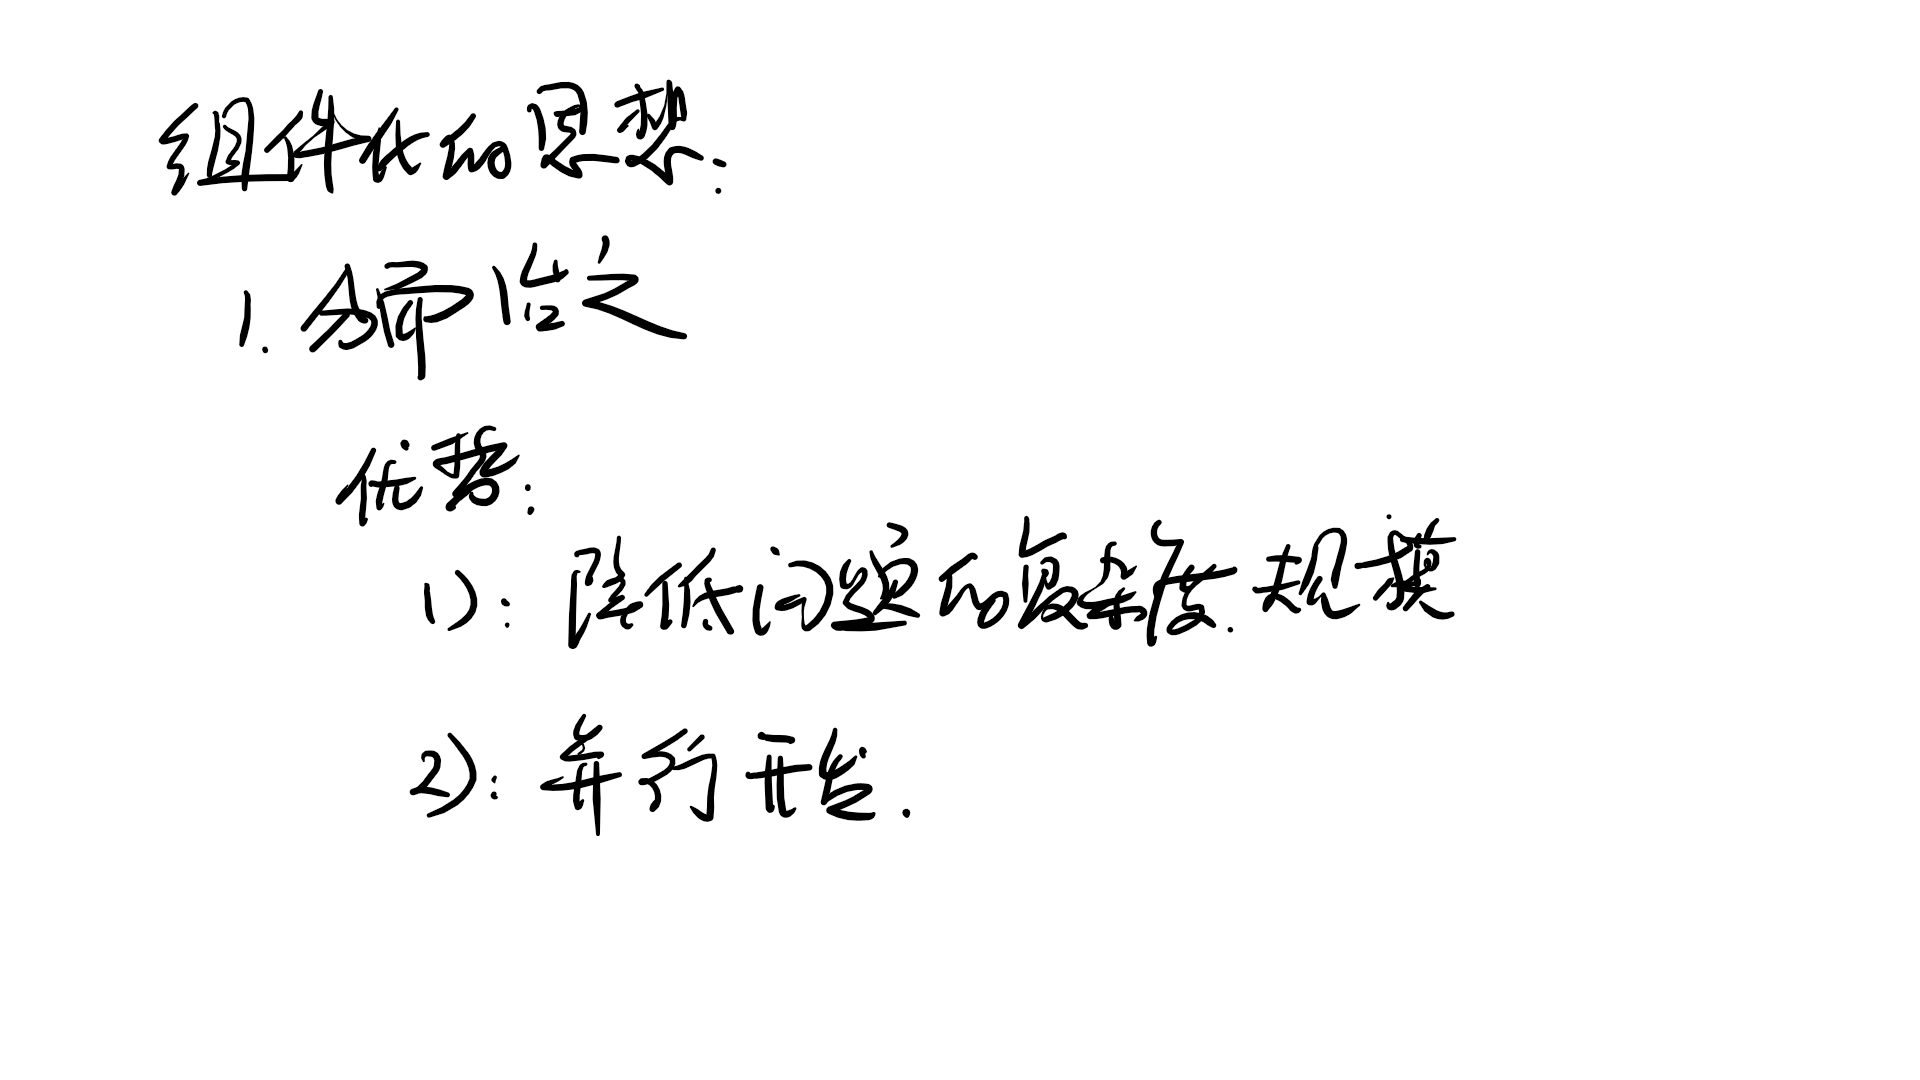 组件化的思想:
1. 分而治之
优势:
1): 降低问题的复杂度.规模
2): 并行开发.